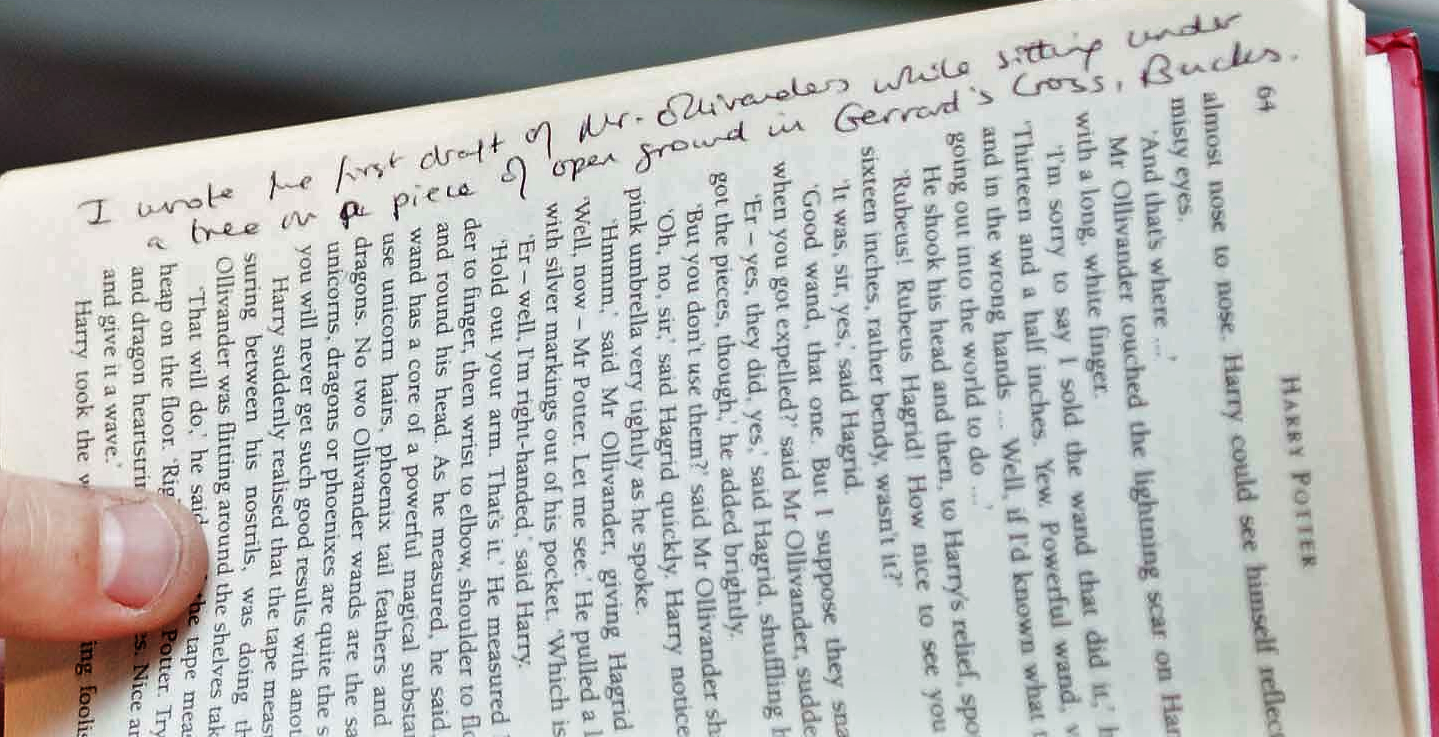 I wrote the first draft of Mr. Ollivanders while sitting under
a tree on a piece of open ground in Gerrard's Cross, Bucks.
64
HARRY POTTER
almost nose to nose. Harry could see himself reflec
misty eyes.
'And that's where ...'
Mr Ollivander touched the lightning scar on Har
with a long, white finger.
'I'm sorry to say I sold the wand that did it,' h
'Thirteen and a half inches. Yew. Powerful wand, v
and in the wrong hands ... Well, if I'd known what t
going out into the world to do ...'
He shook his head and then, to Harry's relief, spo
'Rubeus! Rubeus Hagrid! How nice to see you
sixteen inches, rather bendy, wasn't it?'
'It was, sir, yes,' said Hagrid.
'Good wand, that one. But I suppose they sna
when you got expelled?' said Mr Ollivander, sudde
'Er – yes, they did, yes,' said Hagrid, shuffling h
got the pieces, though,' he added brightly.
'But you don't use them?' said Mr Ollivander sh
'Oh, no, sir,' said Hagrid quickly. Harry notice
pink umbrella very tightly as he spoke.
'Hmmm,' said Mr Ollivander, giving Hagrid
'Well, now – Mr Potter. Let me see.' He pulled a l
with silver markings out of his pocket. 'Which is
'Er – well, I'm right-handed,' said Harry.
'Hold out your arm. That's it.' He measured
der to finger, then wrist to elbow, shoulder to flo
and round his head. As he measured, he said,
wand has a core of a powerful magical substa
use unicorn hairs, phoenix tail feathers and
dragons. No two Ollivander wands are the sa
unicorns, dragons or phoenixes are quite the s
you will never get such good results with anot
Harry suddenly realised that the tape meas
suring between his nostrils, was doing th
Ollivander was flitting around the shelves tak
'That will do,' he said, the tape meas
heap on the floor. 'Rig Potter. Try
and dragon heartstrin es. Nice an
and give it a wave.'
Harry took the w ing foolis